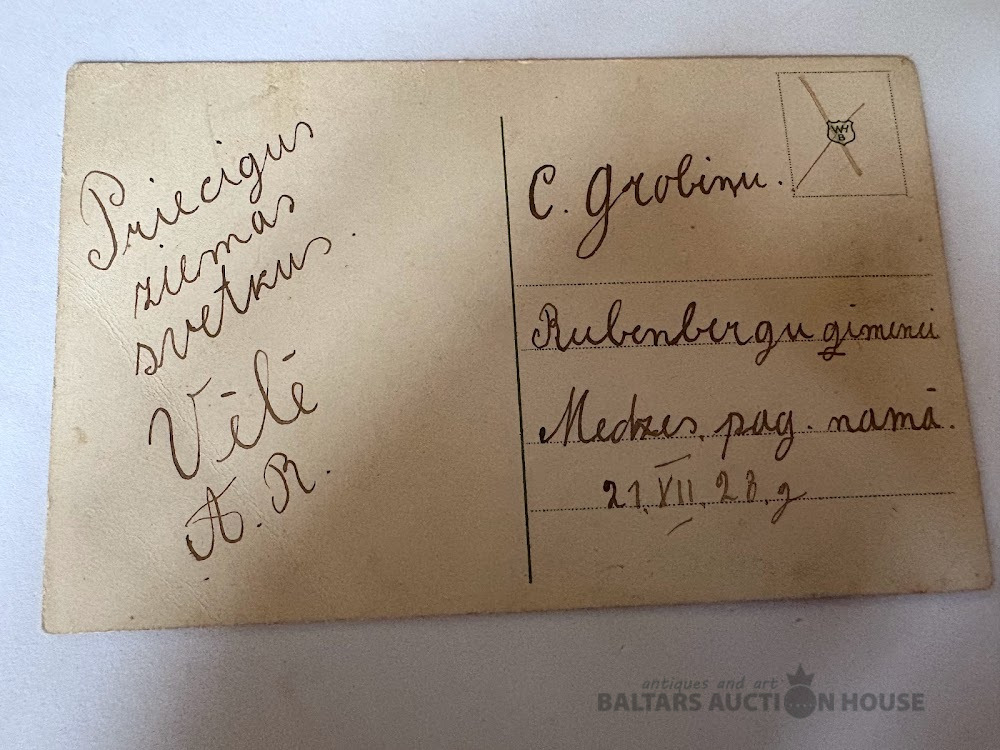 Priecigus
ziemas
svetkus.
Vēlē
A. R.
WH
B
C. Grobiņu.
Rubenbergu ģimenei
Medzes. pag. namā.
21. XII. 28. g
antiques and art
BALTARS AUCTION HOUSE